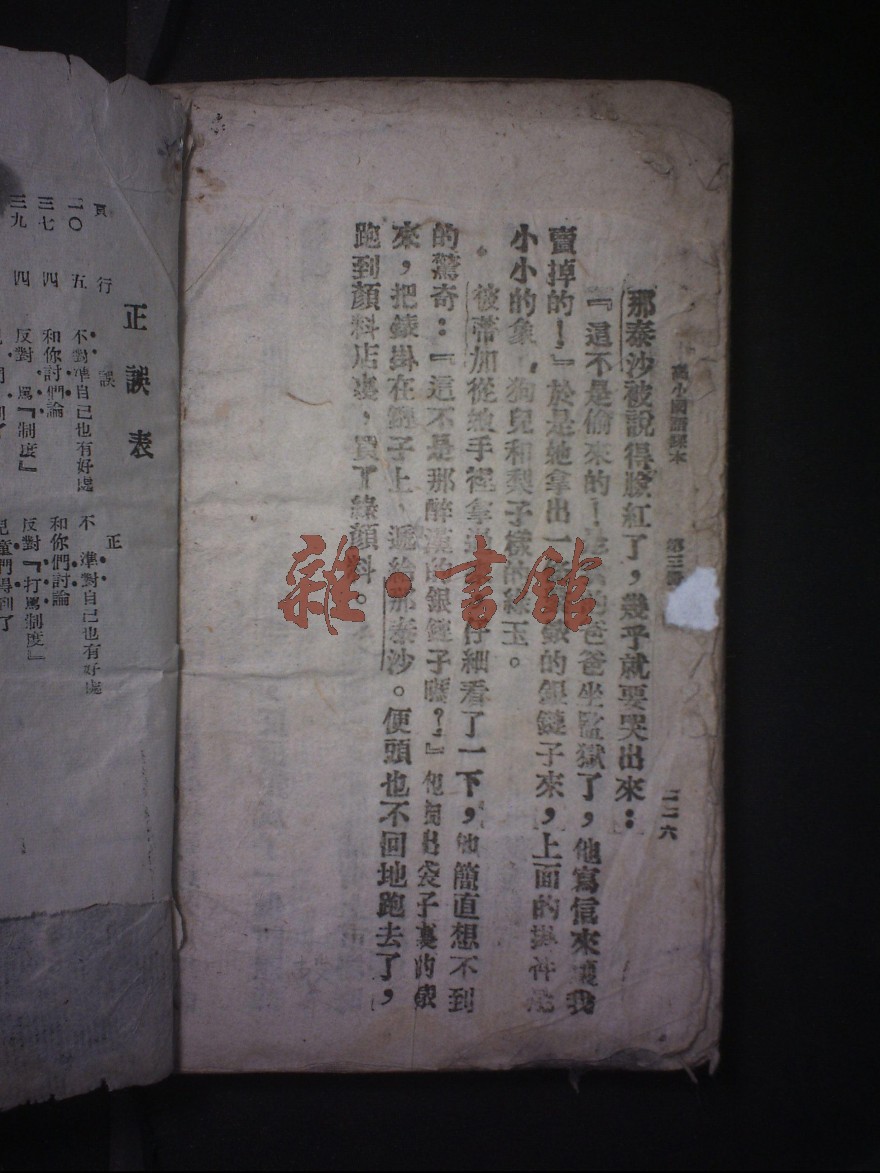 高小國語課本　第三冊
一一六
那泰沙被說得臉紅了，幾乎就要哭出來：
『這不是偷來的！的爸爸坐監獄了，他寫信來讓我
賣掉的！』於是她拿出一的銀鏈子來，上面的掛件是
小小的象，狗兒和梨子樣的綠玉。
彼蒂加從她手裡拿過仔細看了一下，他簡直想不到
的驚奇：『這不是那醉漢的銀鏈子嗎？』他掏出袋子裏的錶
來，把錶掛在鏈子上，遞給那泰沙。便頭也不回地跑去了，
跑到顏料店裏，買了綠顏料。
雜·書館
正誤表
頁　行　誤　正
二〇　五　不對準自己也有好處　不準對自己也有好處
三七　四　和你討們論　和你們討論
三九　四　反對、罵『制度』　反對『打罵制度』
兒童們得到了